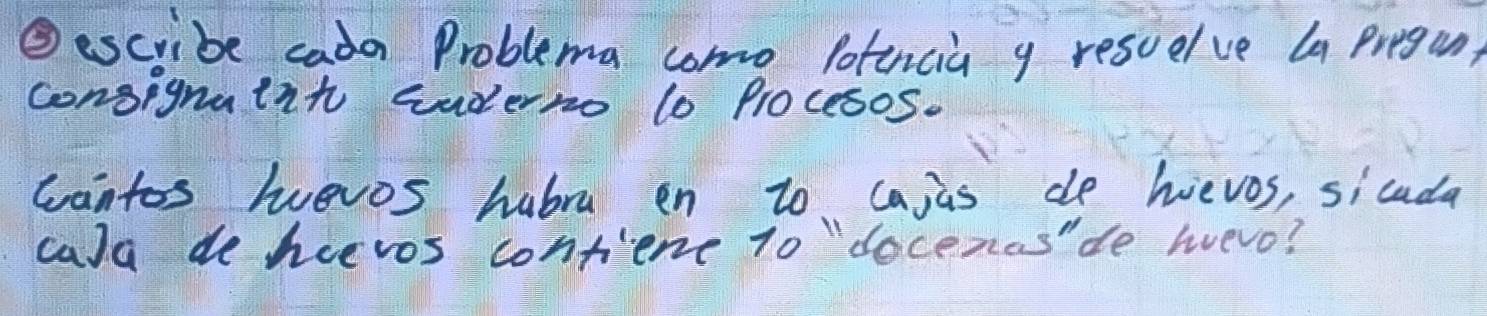 ③ escribe cada Problema como Potencia y resuelve la Pregunt
consigna en tu cuaderno lo Procesos.
cuántos huevos habra en 10 cajas de huevos, si cada
caja de huevos contiene 10 "docenas" de huevo?